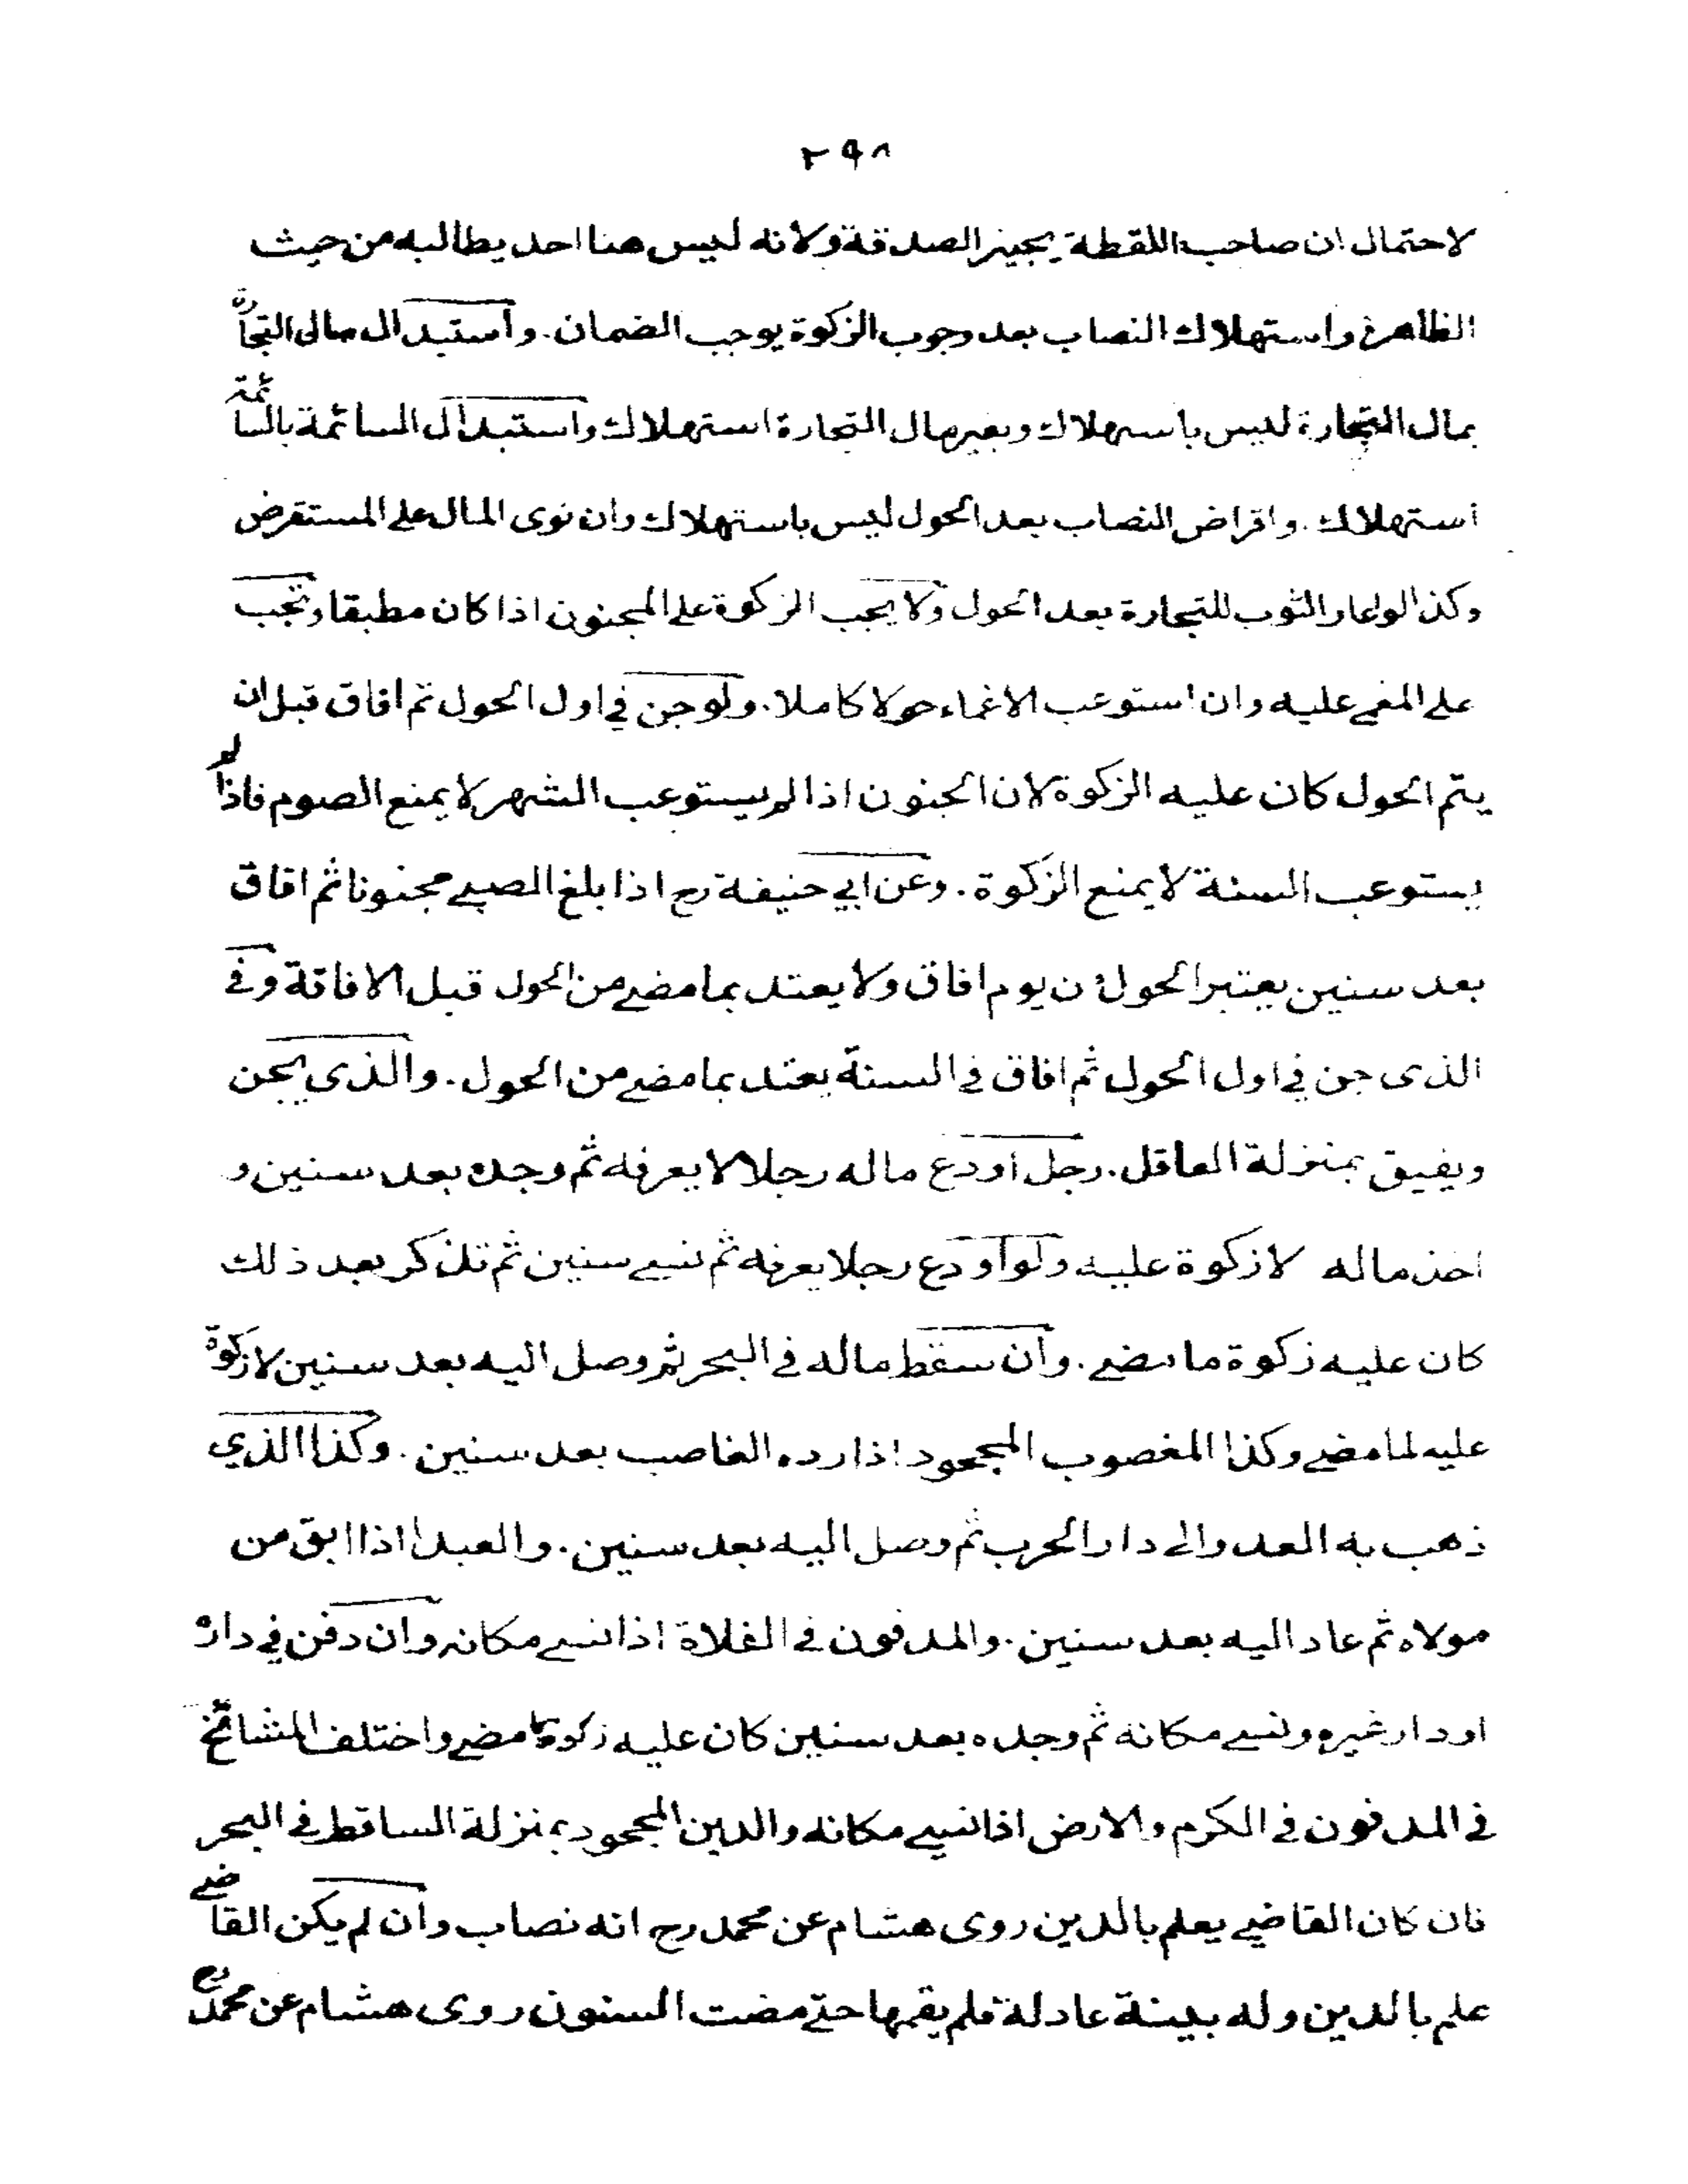 ٢٩٨
لاحتمال ان صاحب اللقطة يجيز الصدقة ولانه ليس هنا احد يطالبه من حيث
الظاهر واستهلاك النصاب بعد وجوب الزكوة يوجب الضمان. واستبدال مال التجارة
بمال التجارة ليس باستهلاك وبغير مال التجارة استهلاك واستبدال السائمة بالسائمة
استهلاك. واقراض النصاب بعد الحول ليس باستهلاك وان توى المال على المستقرض
وكذا لو اعار الثوب للتجارة بعد الحول ولا يجب الزكوة على المجنون اذا كان مطبقا وتجب
على المغمى عليه وان استوعب الاغماء حولا كاملا. ولو جن في اول الحول ثم افاق قبل ان
يتم الحول كان عليه الزكوة لان الجنون اذا لم يستوعب الشهر لا يمنع الصوم فاذا لم
يستوعب السنة لا يمنع الزكوة. وعن ابي حنيفة رح اذا بلغ الصبي مجنونا ثم افاق
بعد سنين يعتبر الحول من يوم افاق ولا يعتد بما مضى من الحول قبل الافاقة وفى
الذى جن في اول الحول ثم افاق في السنة يعتد بما مضى من الحول. والذى يجن
ويفيق بمنزلة العاقل. رجل اودع ماله رجلا لا يعرفه ثم وجده بعد سنين و
اخذ ماله لا زكوة عليه ولو اودع رجلا يعرفه ثم نسى سنين ثم تذكر بعد ذلك
كان عليه زكوة ما مضى. وان سقط ماله فى البحر ثم وصل اليه بعد سنين لا زكوة
عليه لما مضى وكذا المغصوب المجحود اذا رده الغاصب بعد سنين. وكذا الذي
ذهب به العدو الى دار الحرب ثم وصل اليه بعد سنين. والعبد اذا ابق من
مولاه ثم عاد اليه بعد سنين. والمدفون فى الفلاة اذا نسى مكانه وان دفن في داره
او دار غيره ونسى مكانه ثم وجده بعد سنين كان عليه زكوة ما مضى واختلف المشائخ
فى المدفون فى الكرم والارض اذا نسى مكانه والدين المجحود بمنزلة الساقط فى البحر
فان كان القاضى يعلم بالدين روى هشام عن محمد رح انه نصاب وان لم يكن القاضى
علم بالدين وله بينة عادلة فلم يقمها حتى مضت السنون روى هشام عن محمد رح